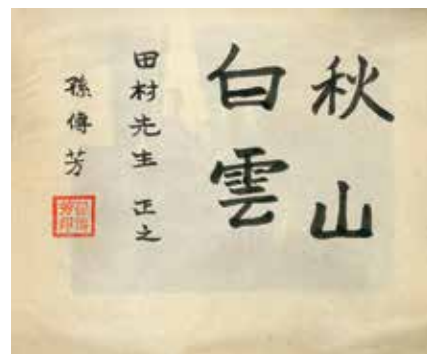 秋山
白雲
田村先生 正之
孫傳芳